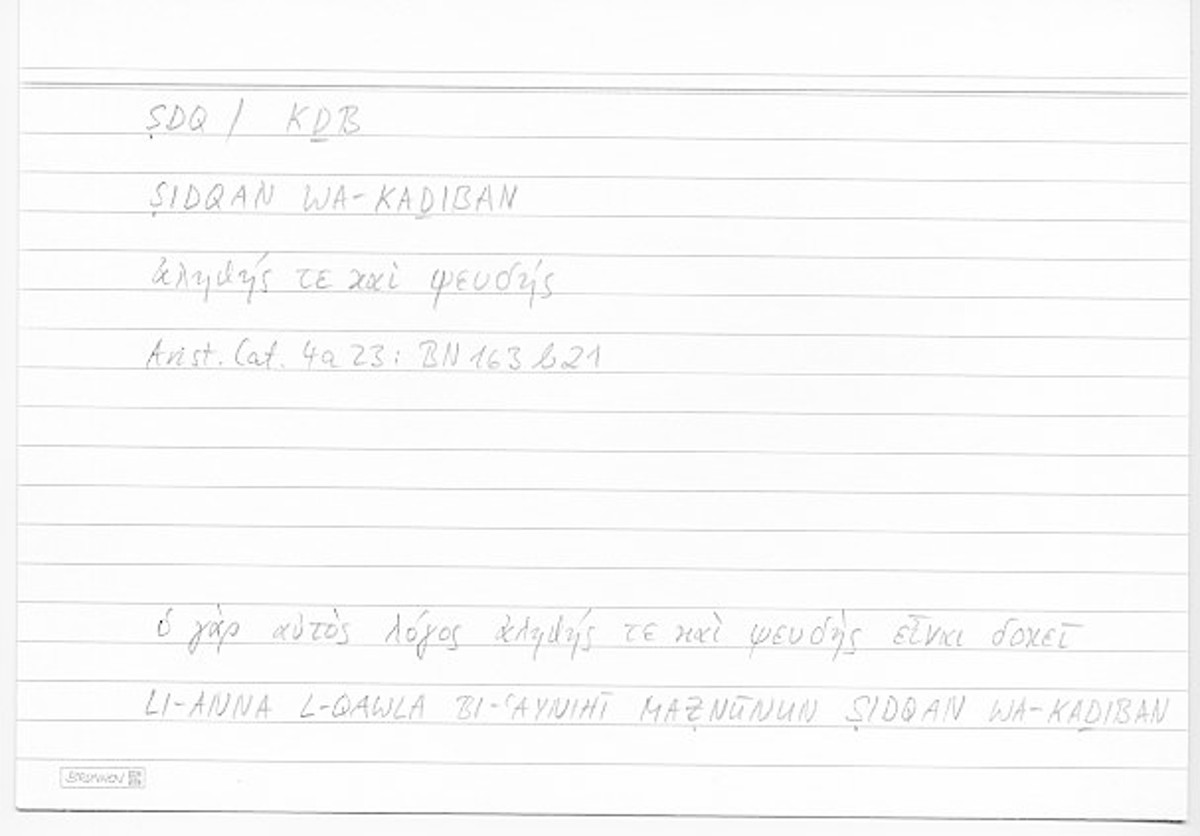 ṢDQ / KḎB
ṢIDQAN WA-KAḎIBAN
ἀληϑής τε καὶ ψευδής
Arist. Cat. 4a23: BN 163b21
ὁ γὰρ αὐτὸς λόγος ἀληϑής τε καὶ ψευδὴς εἶναι δοκεῖ
LI-ANNA L-QAWLA BI-ʿAYNIHĪ MAẒNŪNUN ṢIDQAN WA-KAḎIBAN